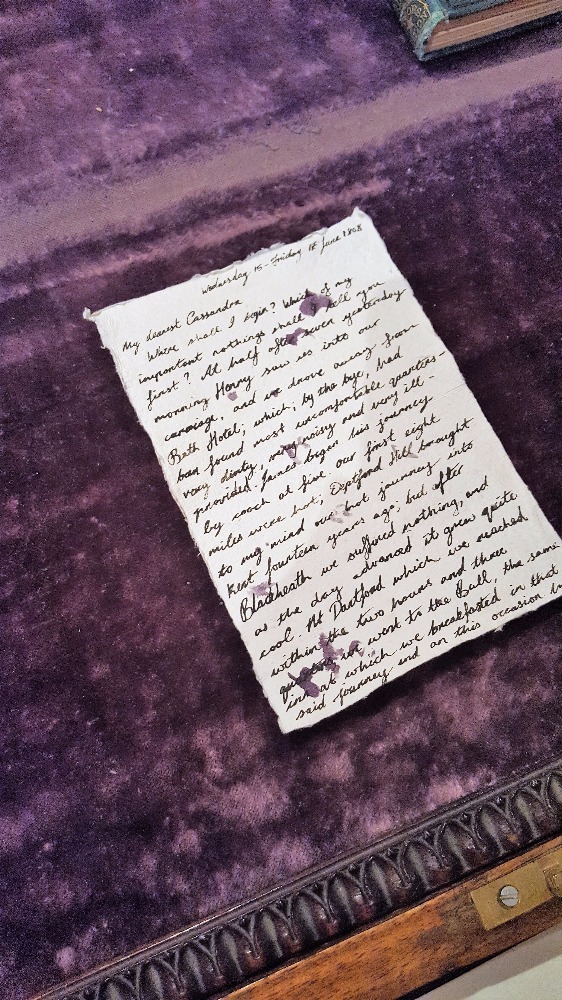 Wednesday 15 - Friday 17 June 1808
My dearest Cassandra
Where shall I begin? Which of my
important nothings shall I tell you
first? At half after seven yesterday
morning Henry saw us into our
carriage, and we drove away from
Bath Hotel; which, by the bye, had
been found most uncomfortable quarters-
very dirty, very noisy and very ill-
provided. James began his journey
by coach at five. Our first eight
miles were hot; Deptford Hill brought
to my mind our hot journey into
Kent fourteen years ago; but after
Blackheath we suffered nothing, and
as the day advanced it grew quite
cool. At Dartford which we reached
within the two hours and three
we went to the Bull, the same
inn at which we breakfasted in that
said journey and on this occasion